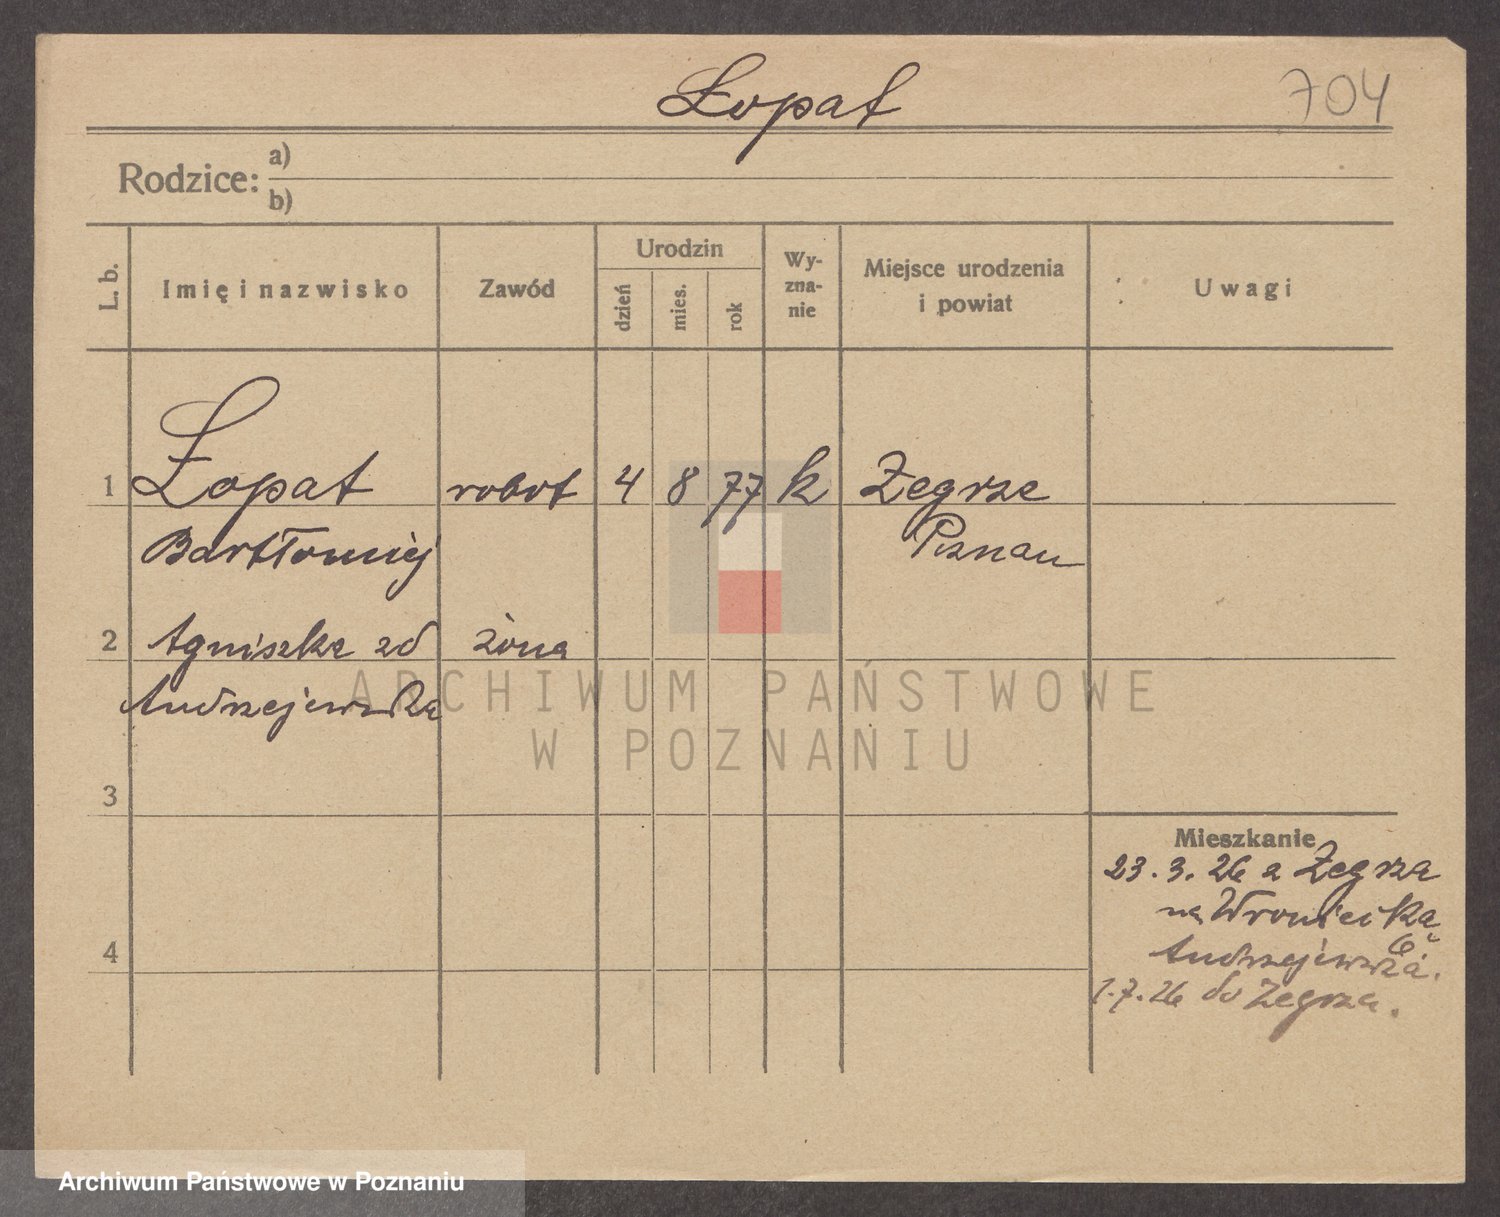 Łopat
704
Rodzice: a)
b)
L. b.
Imię i nazwisko
Zawód
Urodzin
dzień
mies.
rok
Wy-
zna-
nie
Miejsce urodzenia
i powiat
Uwagi
1 Łopat robot 4 8 77 k Zegrze
Bartłomiej Poznan
2 Agniszka zd żona
Andrzejewska
3
4
Mieszkanie
23. 3. 26 z Zegrza
na Wroniecką
6
Andrzejewska.
1.7.26 do Zegrza.
ARCHIWUM PAŃSTWOWE
W POZNANIU
Archiwum Państwowe w Poznaniu